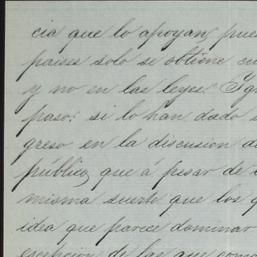 cia que lo apoyan, pues
paises solo se obtiene
y no en las leyes.
paso: si lo han dado
greso en la discusion de
público, que á pesar de
misma suerte que los
idea que parece dominar